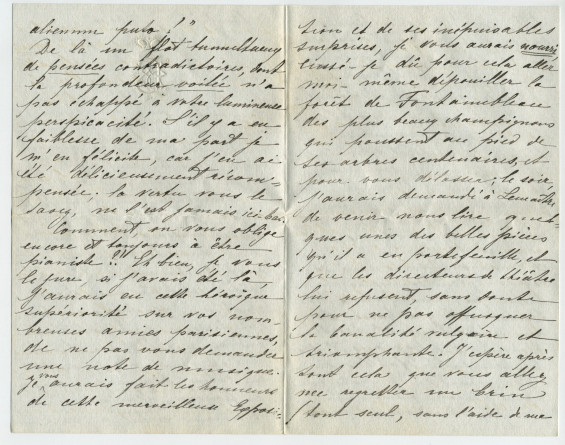 alienum puto !"
De là un flot tumultueux
de pensées contradictoires, dont
la profondeur voilée n'a
pas échappé à votre lumineuse
perspicacité. S'il y a eu
faiblesse de ma part je
m'en félicite, car j'en ai
été délicieusement récom-
pensée ; la vertu vous le
savez, ne l'est jamais ici bas.
Comment, on vous oblige
encore et toujours à être
pianiste ?! Eh bien, je vous
le jure, si j'avais été là,
j'aurais eu cette héroïque
supériorité sur vos nom-
breuses amies parisiennes,
de ne pas vous demander
une note de musique.
Je vous aurais fait les honneurs
de cette merveilleuse Exposi-
tion et de ses inépuisables
surprises, je vous aurais nourri
eussé-je dû pour cela aller
moi-même dépouiller la
forêt de Fontainebleau
des plus beaux champignons
qui poussent au pied de
ses arbres centenaires, et
pour vous délasser, le soir,
j'aurais demandé à Lemaître
de venir nous lire quel-
ques unes des belles pièces
qu'il a en portefeuille, et
que les directeurs de théâtre
lui refusent, sans doute
pour ne pas offusquer
la banalité vulgaire et
triomphante. J'espère après
tout cela que vous allez
me regretter un brin
(tout seul, sans l'aide de me